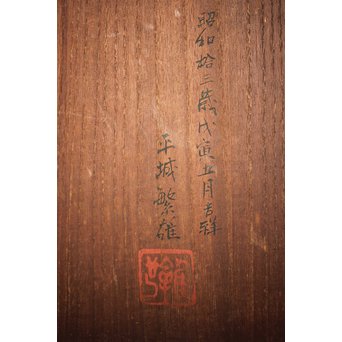 昭和拾三歳戊寅五月吉祥
平城繁雄